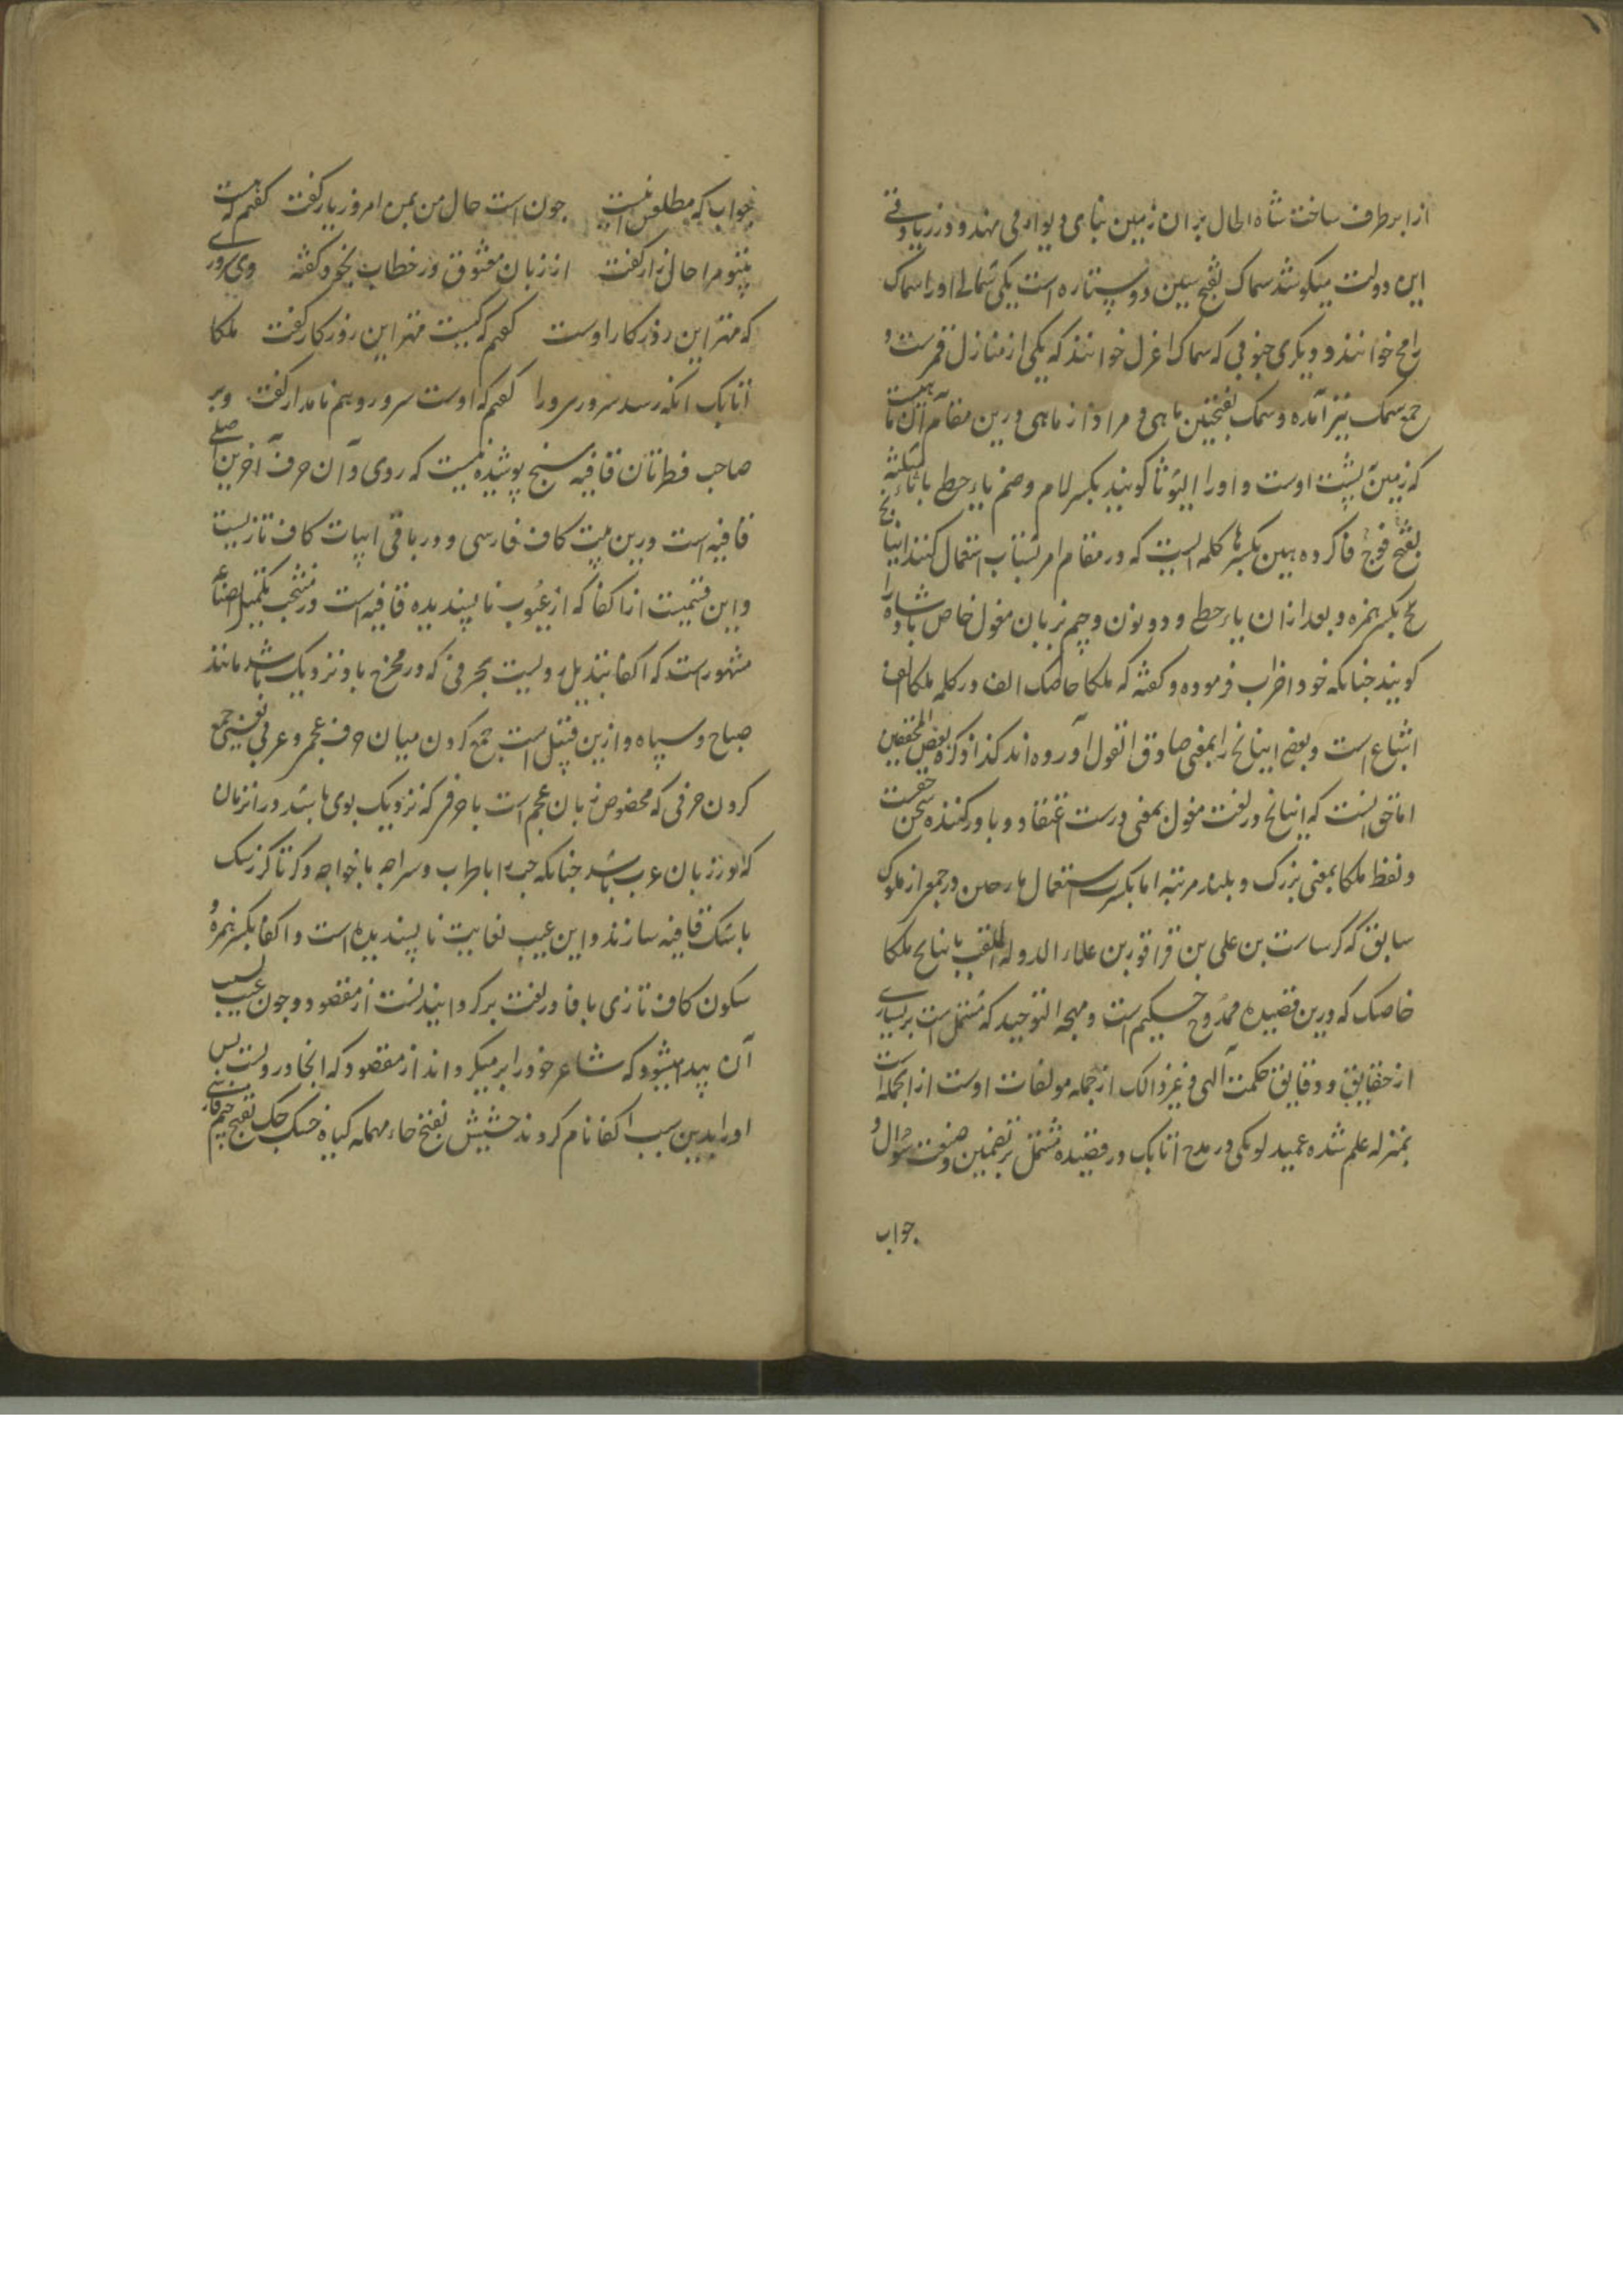 از ابر طرف ساخت شاه الحال بر ان زمین بنای دیوار می نهند و در زیادتی
این دولت میکوشد سماک بفتح سین دو ستاره است یکی شمالی او را سماک
رامح خوانند و دیگری جنوبی که سماک اعزل خوانند که یکی از منازل قمر است و
جمع سمک نیز آمده و سمک بفتحتین ماهی و مراد از ماهی درین مقام آن ماهیست
که زمین بپشت اوست و او را لیوثا گویند بکسر لام و ضم یاء حطی با ثاء مثلثه
بفتح فوج فا کروه هین بکسر ها کلمه ایست که در مقام امر بشتاب استعمال کنند اینانج
بکسر همزه و بعد ازان یاء حطی و دو نون و جیم بزبان مغول خاص پادشاه را
کویند جنانکه خود اضراب فرموده و کفته که ملکا خاصک الف در کلمه ملکا الف
اشباع است و بعضی اینانج را بمعنی صادق القول آورده اند کذا ذکره بعض المحققین
اما حق انست که اینانج در لغت مغول بمعنی درست اعتقاد و باور کننده سخن حقست
و لفظ ملکا بمعنی بزرک و بلند مرتبه اما بکسر استعمال در جمع از ملوک
سابق که کرساست بن علی بن قراقور بن علاء الدوله الملقب باینانج ملکا
خاصک که درین قصیده ممدوح حکیم است و مهجه التوحید که مشتمل است بر بسیاری
از حقایق و دقایق حکمت آلهی و غیر ذالک از جمله مولفات اوست از انجمله است
بمنزله علم شده عمید لومکی در مدح اتابک در قصیده مشتمل بر تضمین و صنعت سوال و
جواب
جواب که مطلعش اینست جون است حال من بمن امروز یار کفت کفتم که هست
بی تو مرا حال زار کفت از زبان معشوق در خطاب بخود کفته وی سروری
که مهتر این روزکار اوست کفتم که کیست مهتر این روزکار کفت ملکا
اتابک انکه رسد سرور سرورا کفتم که اوست سرور و هم نامدار کفت و بر
صاحب فطرتان قافیه سنج پوشیده نیست که روی و آن حرف آخرین اصلی
قافیه است درین بیت کاف فارسی و در باقی ابیات کاف تازیست
و این قسمیست از اکفا که از عیوب ناپسندیده قافیه است و در منتخب تکمیل الصناعه
مشهور است که اکفا تبدیل رویست بحرفی که در مخرج باو نزدیک باشد مانند
صباح و سپاه و ازین قبیل است جمع کردن میان حرف عجم و عربی یعنی جمع
کردن حرفی که مخصوص زبان عجم است با حرفی که نزدیک بوی باشد در انزمان
که در زبان عرب باشد جنانکه چپ را با طراب و سراجه با خواجه و کرتا کرز سک
باشک قافیه سازند و این عیب بغایت ناپسندیده است و اکفا بکسر همزه و
سکون کاف تازی با فا در لغت برکردانیدنست از مقصود و جون بسبب عیب
آن پیدا میشود که شاعر خود را بر میکرداند از مقصود که اتحاد رویست پس
او را بدین سبب اکفا نام کردند حشیش بفتح حاء مهمله کیاه خشک چک بفتح جیم فارسی